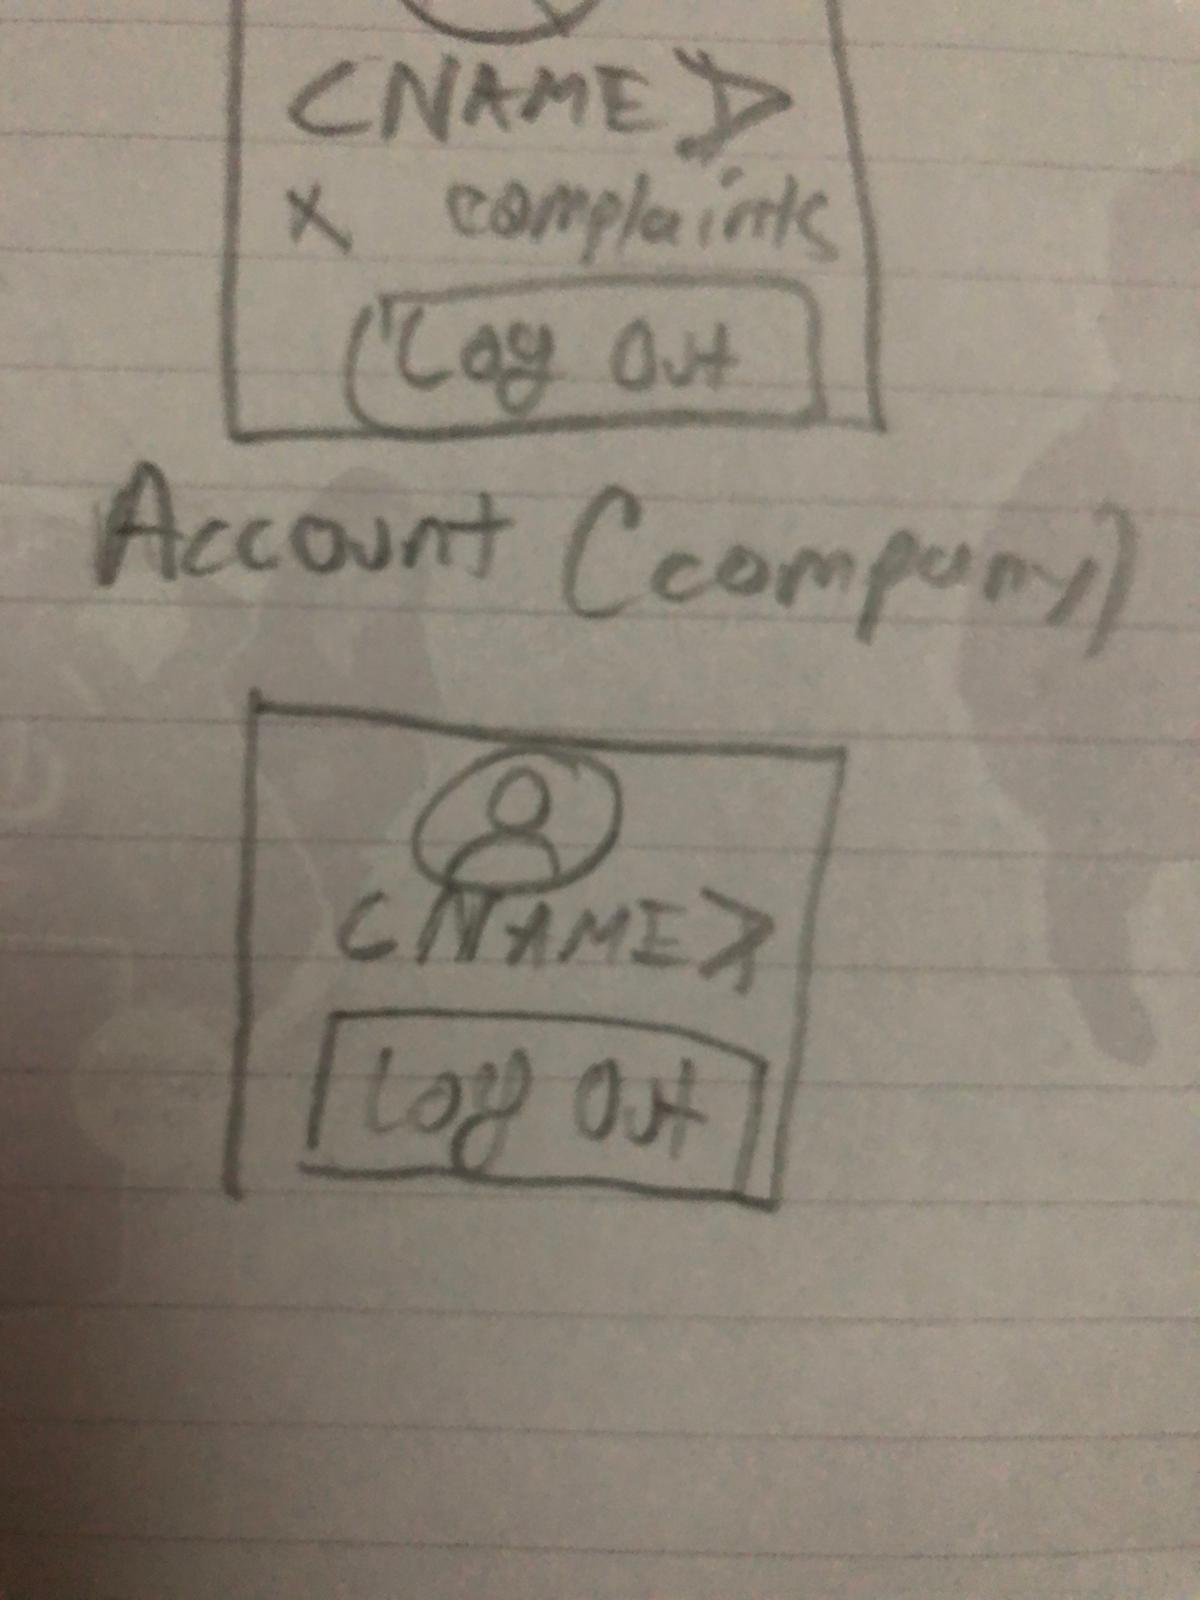 <NAME>
X complaints
Log Out
Account (company)
<NAME>
Log Out